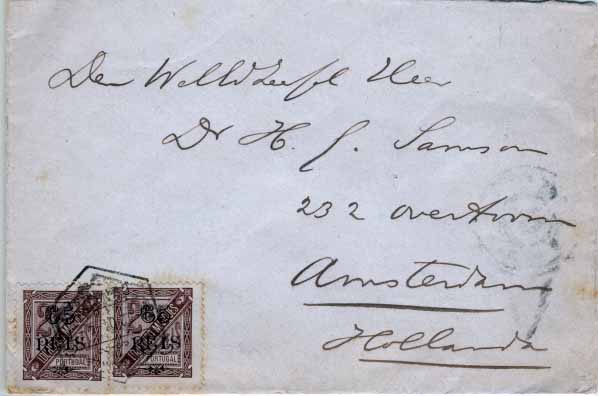 Den WelEd. Heer
Dr H. J. Samson
232 overtoom
Amsterdam
Hollanda
65 65
REIS REIS
PORTUGAL PORTUGAL